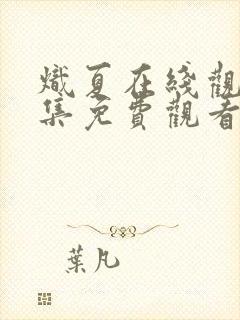 熾夏在綫觀
集免費觀看
葉凡